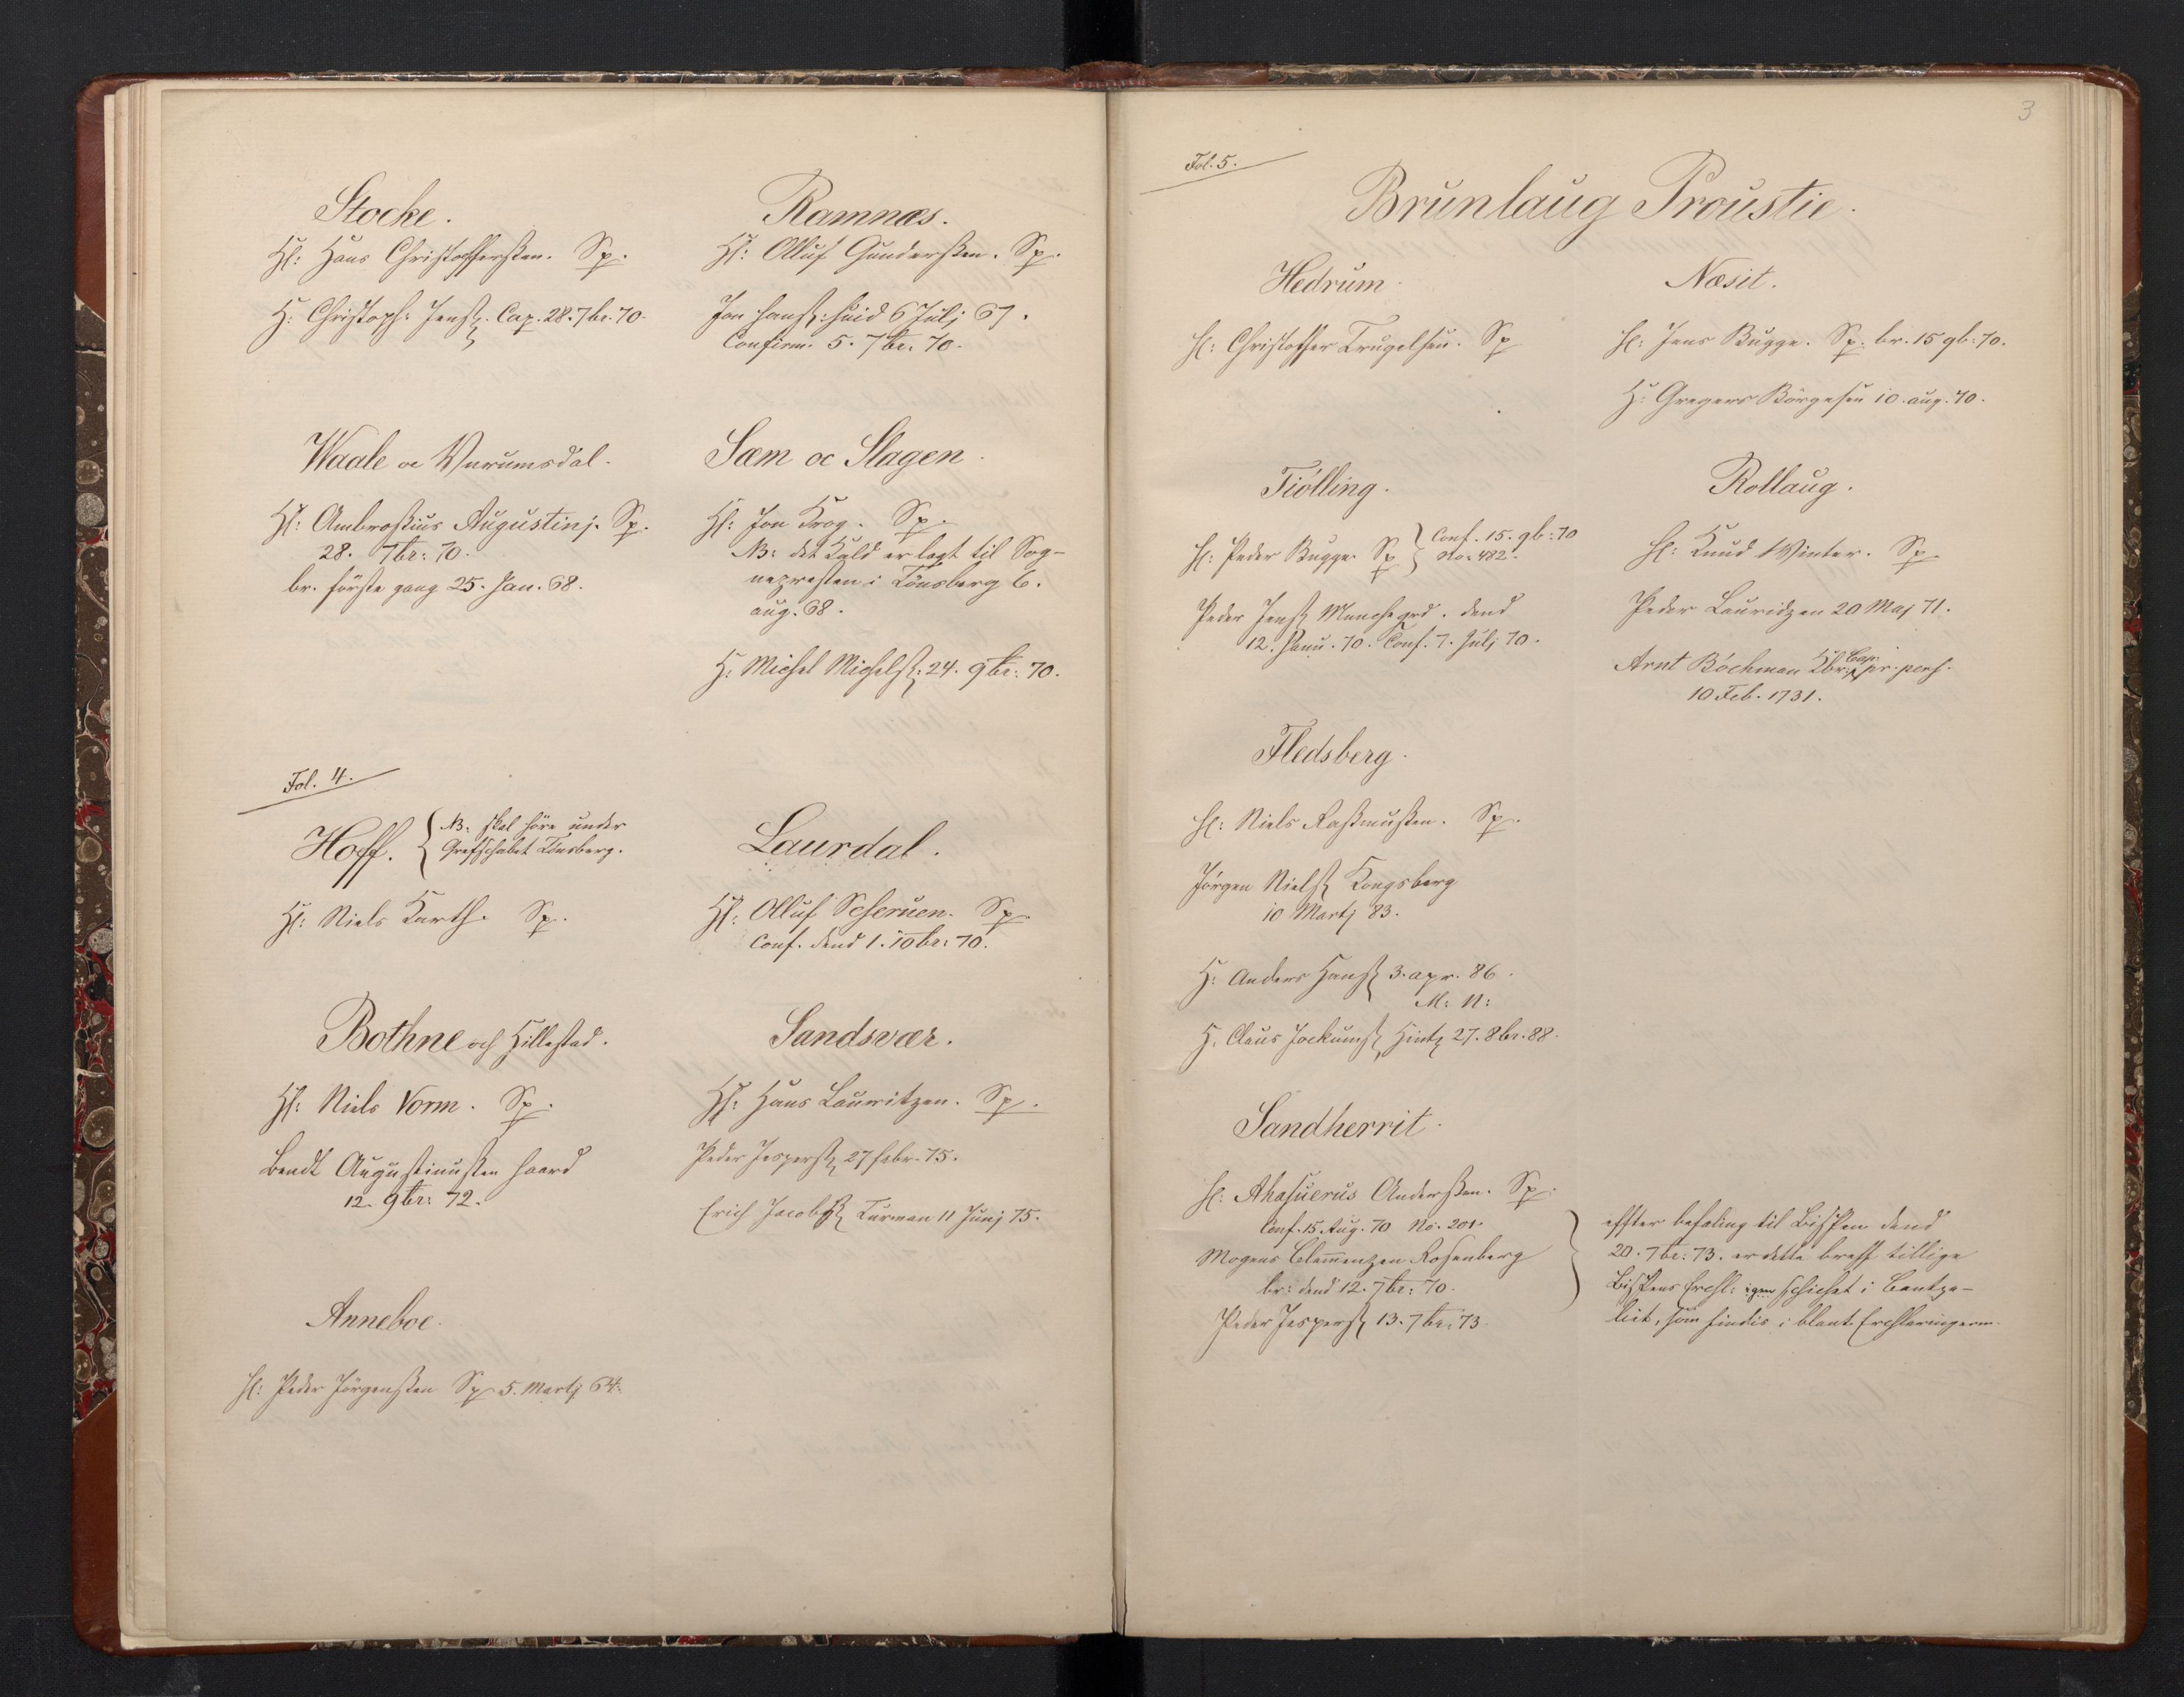 Stocke.
Hl: Hans Christoffersten. Sp.
H: Christoph: Jenst. Cap. 28. 7br. 70.
Ramnæs.
Hl: Olluf Gundersten. Sp.
Jon Hanst: Huid 6 Julj 67.
Confirm. 5. 7br. 70.
Waale oc Unrumsdal.
Hl: Ambrosius Augustinj. Sp.
28. 7br: 70.
br. förste gang 25. Jan. 68.
Sæm oc Slagen.
Hl: Jon Krog. Sp.
NB: det Kald er lagt til Sog-
nepresten i Tönsberg 6.
aug. 68.
H: Michel Michelst: 24. 9br: 70.
Fol. 4.
Hoff. { NB: skal höre under
Grefschabet Tönsberg.
Hl: Niels Karth. Sp.
Laurdal.
Hl: Olluf Scheruen. Sp.
Conf. dend 1. 10br: 70.
Bothne och Hillestad.
Hl: Niels Vorm. Sp.
Bendt Augustinussen Haard
12. 9br: 72.
Sandsvær.
Hl: Hans Lauritzen. Sp.
Peder Jesperst. 27 febr. 75.
Erich Jacobst. Turman 11 Junj 75.
Anneboe.
Hl: Peder Jörgensten Sp 5. Martj 64.
3
Fol. 5.
Brunlaug Proustie.
Hedrum.
Hl: Christoffer Trugelsen. Sp
Næsit.
Hl: Jens Bugge. Sp. br. 15 9b: 70.
H: Gregers Börgesen 10. aug. 70.
Tiölling.
Hl: Peder Bugge. Sp } Conf. 15. 9b: 70
No: 482.
Peder Jenst. Munchegrd. dend
12. Janu. 70. Conf. 7. Julj 70.
Rollaug.
Hl: Knud Winter. Sp
Peder Lauridzen 20 Maj 71.
Arnt Böckman Cap. pr. pers.
10 Feb. 1731.
Fledsberg.
Hl: Niels Rasmussen. Sp.
Jörgen Nielst. Kongsberg
10 Martj 83.
H: Anders Hanst. 3. apr. 86.
M: N:
H. Claus Jockumst. Hintz 27. 8br. 88.
Sandherrit.
Hl: Ahasuerus Andersen. Sp.
Conf. 15. Aug. 70 No. 201.
Mogens Clemenzen Rosenberg
br: dend 12. 7br: 70.
Peder Jesperst. 13. 7br: 73.
effter befaling til Bispen dend
20. 7br: 73. er dette breff tillige
Bispens Erchl: igen schichet i Cantze-
liit, som findis i blant Erchleringerne.